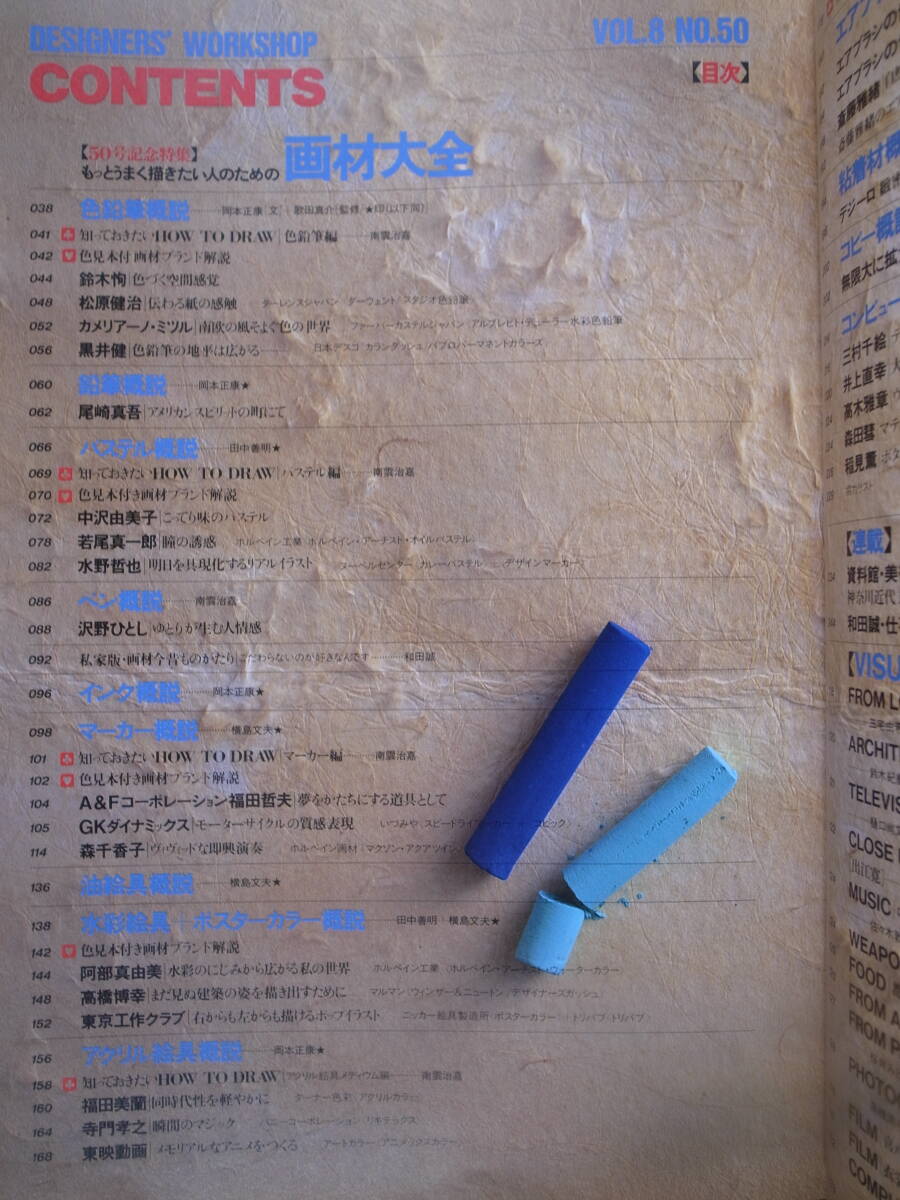 DESIGNERS' WORKSHOP
VOL.8 NO.50
CONTENTS
【目次】
【50号記念特集】
もっとうまく描きたい人のための 画材大全
038 色鉛筆概説………岡本正康[文]+歌田真介[監修/★印(以下同)]
041 知っておきたいHOW TO DRAW|色鉛筆編………南雲治嘉
042 色見本付き画材ブランド解説
044 鈴木恂|色づく空間感覚
048 松原健治|伝わる紙の感触 ターレンスジャパン ダーウェント/スタジオ色鉛筆
052 カメリアーノ・ミツル|南欧の風そよぐ色の世界 ファーバーカステルジャパン/アルブレヒト・デューラー水彩色鉛筆
056 黒井健|色鉛筆の地平は広がる 日本デスコ/カランダッシュ/パブロパーマネントカラーズ
060 鉛筆概説………岡本正康★
062 尾崎真吾|アメリカンスピリットの町にて
066 パステル概説………田中善明★
069 知っておきたいHOW TO DRAW|パステル編………南雲治嘉
070 色見本付き画材ブランド解説
072 中沢由美子|こってり味のパステル
078 若尾真一郎|瞳の誘惑 ホルベイン工業 ホルベイン・アーチスト・オイルパステル
082 水野哲也|明日を具現化するリアルイラスト ヌーベルセンター カレーパステル デザインマーカー
086 ペン概説………南雲治嘉
088 沢野ひとし|ゆとりが生む人情感
092 私家版・画材今昔ものがたり|こだわらないのが好きなんです………和田誠
096 インク概説………岡本正康★
098 マーカー概説………横島文夫★
101 知っておきたいHOW TO DRAW|マーカー編………南雲治嘉
102 色見本付き画材ブランド解説
104 A&Fコーポレーション福田哲夫|夢をかたちにする道具として
105 GKダイナミックス|モーターサイクルの質感表現 いづみや スピードライ コピック
114 森千香子|ヴィヴィッドな即興演奏 ホルベイン画材 マクソン・アクアツイン
136 油絵具概説………横島文夫★
138 水彩絵具+ポスターカラー概説………田中善明+横島文夫★
142 色見本付き画材ブランド解説
144 阿部真由美|水彩のにじみから広がる私の世界 ホルベイン工業 ホルベイン・アーチスト・ウォーターカラー
148 高橋博幸|まだ見ぬ建築の姿を描き出すために マルマン(ウィンザー&ニュートン/デザイナーズガッシュ)
152 東京工作クラブ|右からも左からも描けるポップイラスト ニッカー絵具製造所 ポスターカラー トリパブ・トリパブ
156 アクリル絵具概説………岡本正康★
158 知っておきたいHOW TO DRAW|アクリル絵具メディウム編………南雲治嘉
160 福田美蘭|同時代性を軽やかに ターナー色彩 アクリルカラー
164 寺門孝之|瞬間のマジック バニーコーポレーション リキテックス
168 東映動画|メモリアルなアニメをつくる アートカラー アニメックスカラー
エアブラシの
エアブラシの
斎藤雅緒
斎藤雅緒のエ
粘着材概
テジーロ
コピー概説
無限大に拡
コンピュー
三村千絵
井上直幸
高木雅章
森田彗 マテ
稲見薫 ポタ
【連載】
資料館・美
神奈川近代
和田誠・仕
【VISU
FROM LO
ARCHIT
TELEVIS
CLOSE
MUSIC
WEAPO
FOOD
FROM A
FROM P
PHOTO
FILM
FILM
COMP